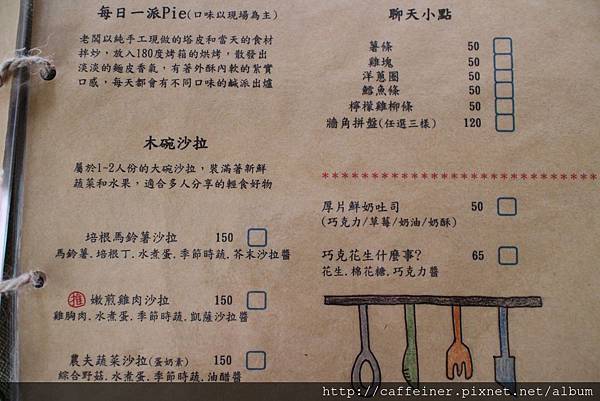 每日一派Pie(口味以現場為主)
老闆以純手工現做的塔皮和當天的食材
拌炒，放入180度烤箱的烘烤，散發出
淡淡的麵皮香氣，有著外酥內軟的紮實
口感，每天都會有不同口味的鹹派出爐
木碗沙拉
屬於1-2人份的大碗沙拉，裝滿著新鮮
蔬菜和水果，適合多人分享的輕食好物
培根馬鈴薯沙拉 150
馬鈴薯.培根丁.水煮蛋.季節時蔬.芥末沙拉醬
推 嫩煎雞肉沙拉 150
雞胸肉.水煮蛋.季節時蔬.凱薩沙拉醬
農夫蔬菜沙拉(蛋奶素) 150
綜合野菇.水煮蛋.季節時蔬.油醋醬
聊天小點
薯條 50
雞塊 50
洋蔥圈 50
鱈魚條 50
檸檬雞柳條 50
牆角拼盤(任選三樣) 120
************************
厚片鮮奶吐司 50
(巧克力/草莓/奶油/奶酥)
巧克花生什麼事? 65
花生.棉花糖.巧克力醬
http://caffeiner.pixnet.net/album